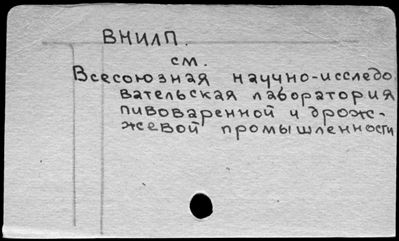 ВНИЛП.
см.
Всесоюзная научно-исследо
вательская лаборатория
пивоваренной и дрож-
жевой промышленности